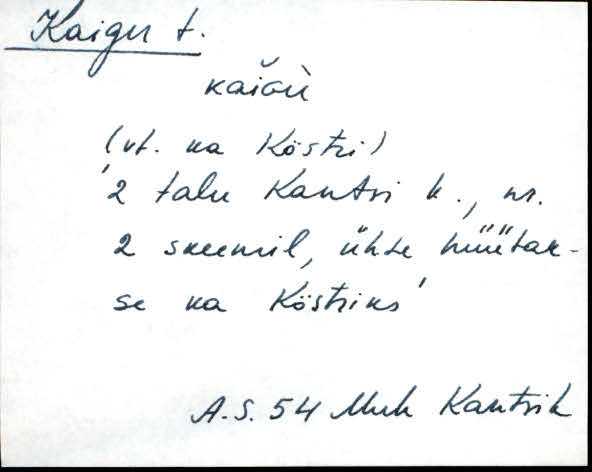 Kaigu t.
(vt. ka Köstri)
2 talu Kantri k., nr.
2 skeemil, ühte hüütak-
se ka Köstriks
A.S. 54 Muh Kantrik